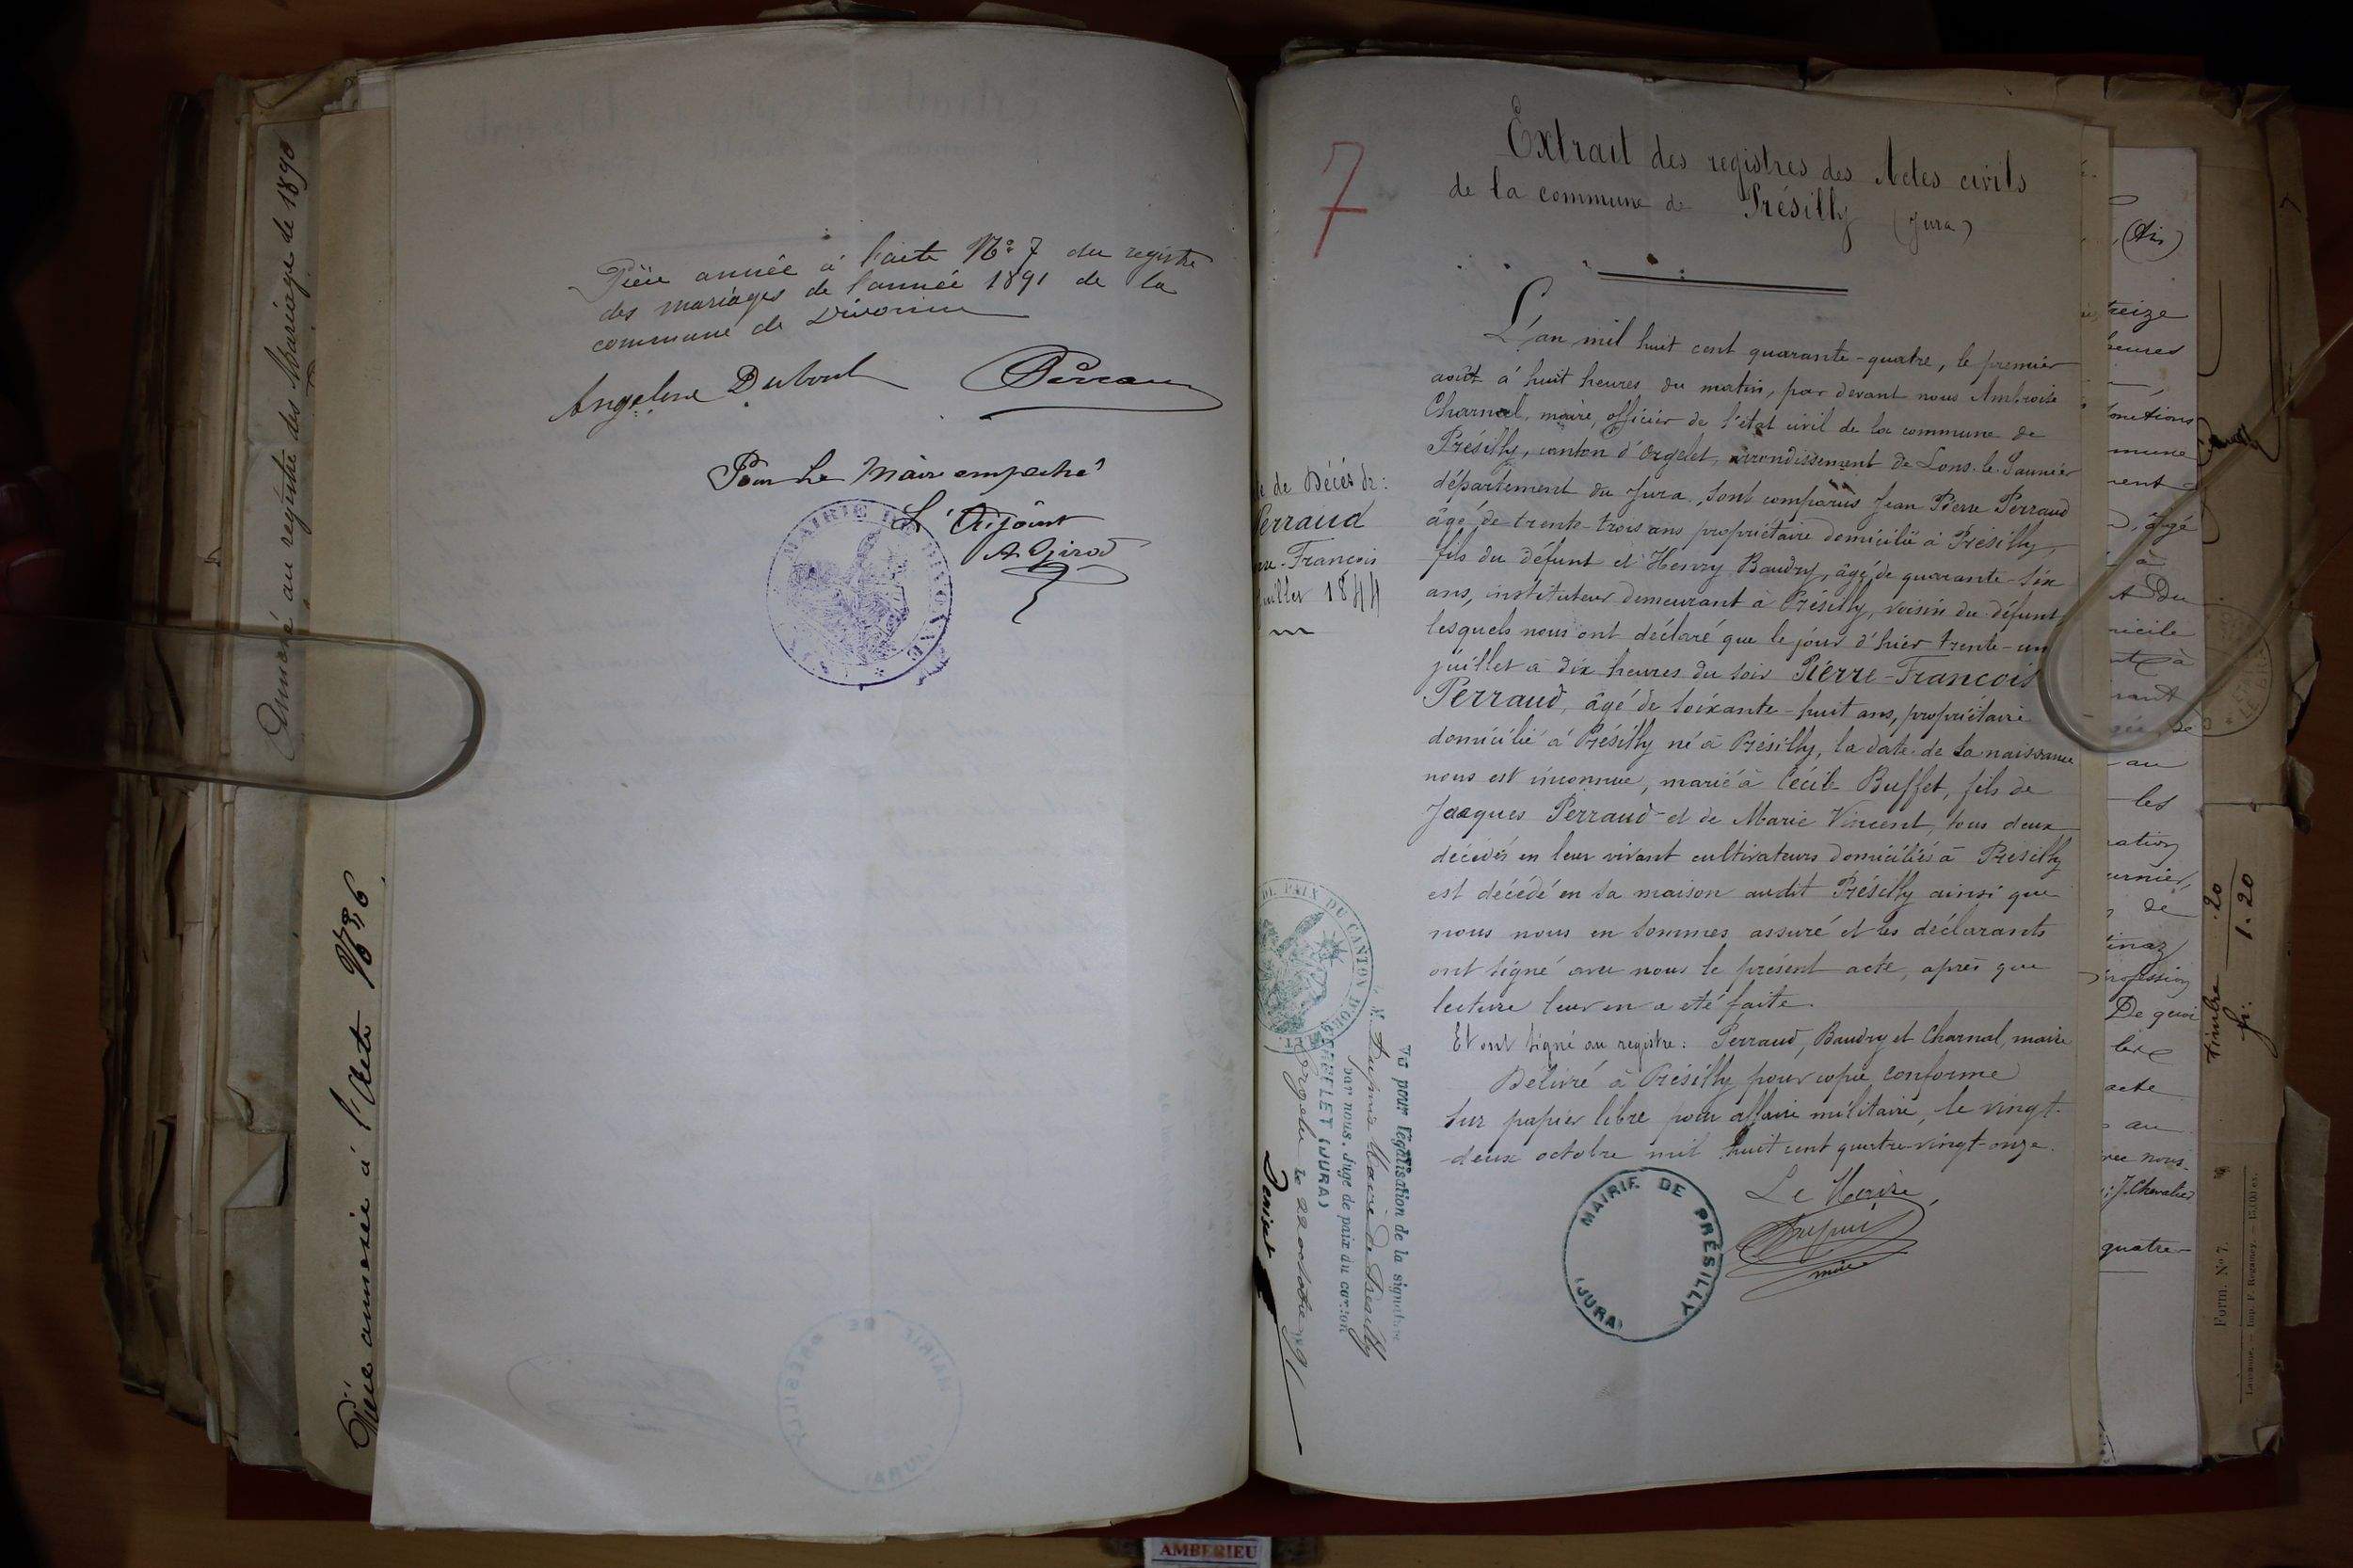 Annexé au registre des Mariage de 1890
Pièce annexée à l'Acte N° 36
Pièce annéé à l'acte N° 7 du registre
des mariages de l'année 1891 de la
commune de Divonne
Angeline Dubout Perraud
Pour Le Maire empeché
L'Adjoint
A. Girod
MAIRIE DE DIVONNE
7
Extrait des registres des Actes civils
de la commune de Présilly (Jura)
L'an mil huit cent quarante-quatre, le premier
août à huit heures du matin, par devant nous Ambroise
Charnal, maire, officier de l'état civil de la commune de
Présilly, canton d'Orgelet, arrondissement de Lons-le-Saunier
département du Jura, sont comparus Jean Pierre Perraud
âgé de trente-trois ans propriétaire domicilié à Présilly,
fils du défunt et Henry Baudry, âgé de quarante-six
ans, instituteur demeurant à Présilly, voisin du défunt,
lesquels nous ont déclaré que le jour d'hier trente-un
juillet à dix heures du soir Pierre-François
Perraud, âgé de soixante-huit ans, propriétaire
domicilié à Présilly né à Présilly, la date de sa naissance
nous est inconnue, marié à Cécile Buffet, fils de
Jacques Perraud et de Marie Vincent, tous deux
décédés en leur vivant cultivateurs domiciliés à Présilly
est décédé en sa maison audit Présilly ainsi que
nous nous en sommes assuré et les déclarants
ont signé avec nous le présent acte, après que
lecture leur en a été faite.
Et ont signé au registre: Perraud, Baudry et Charnal, maire
Délivré à Présilly pour copie conforme
sur papier libre pour affaire militaire, le vingt-
deux octobre mil huit cent quatre-vingt-onze.
Le Maire,
Dupuis
maire
MAIRIE DE PRÉSILLY
(JURA)
de Décés de:
Perraud
François
juillet 1844
DE PAIX DU CANTON D'ORGELET
Vu pour légalisation de la signature
M. Dupuis Maire de Présilly
par nous, Juge de paix du canton
ORGELET (JURA)
Orgelet le 22 octobre 91
(Ain)
treize
heures
fonctions
âgé
à
Du
à
au
les
de
profession
De quoi
acte
au
nous
J. Chevalier
quatre-
timbre .20
fr. 1.20
Form. N° 7.
Lausanne. — Imp. F. Regamey. — 15,000 ex.
AMBERIEU